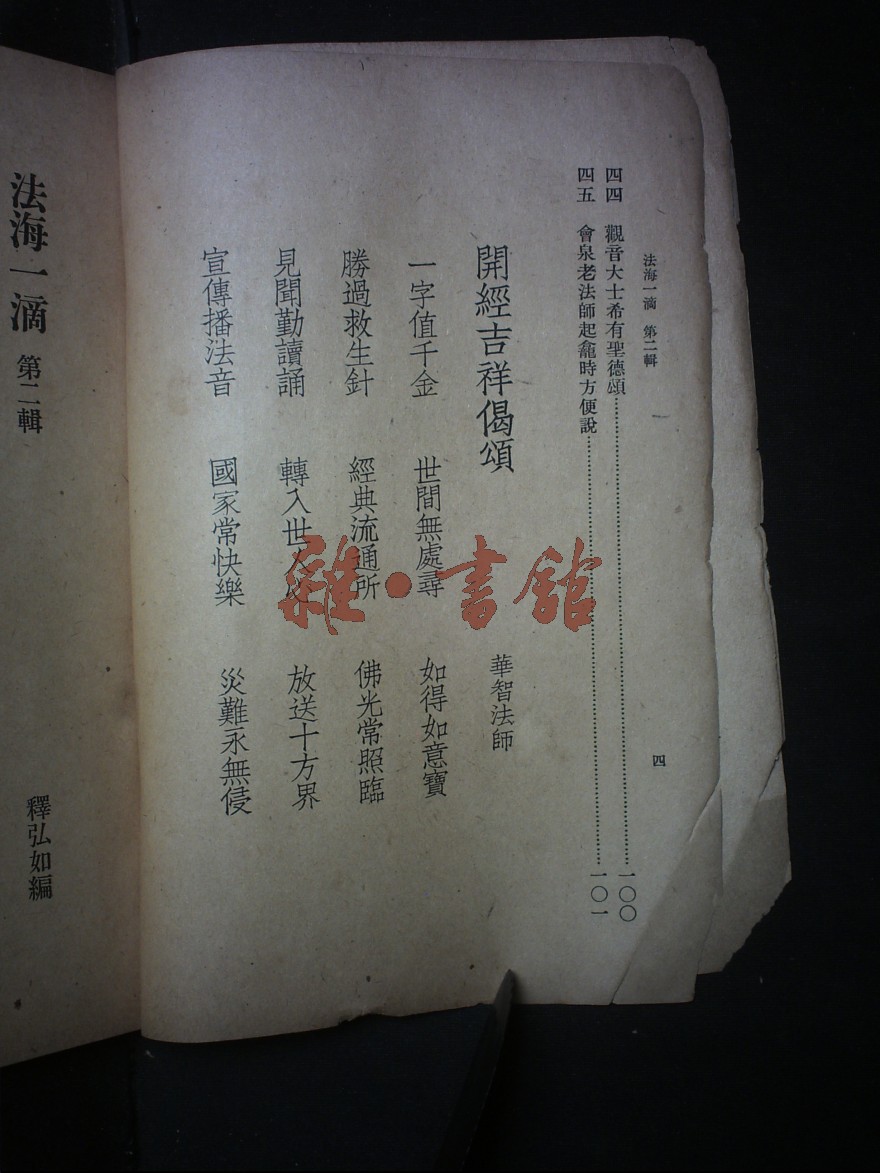 法海一滴　第二輯　四
四四　觀音大士希有聖德頌……一〇〇
四五　會泉老法師起龕時方便說……一〇一
開經吉祥偈頌　華智法師
一字值千金　世間無處尋　如得如意寶
勝過救生針　經典流通所　佛光常照臨
見聞勤讀誦　轉入世人心　放送十方界
宣傳播法音　國家常快樂　災難永無侵
法海一滴　第二輯　釋弘如編
雜·書館